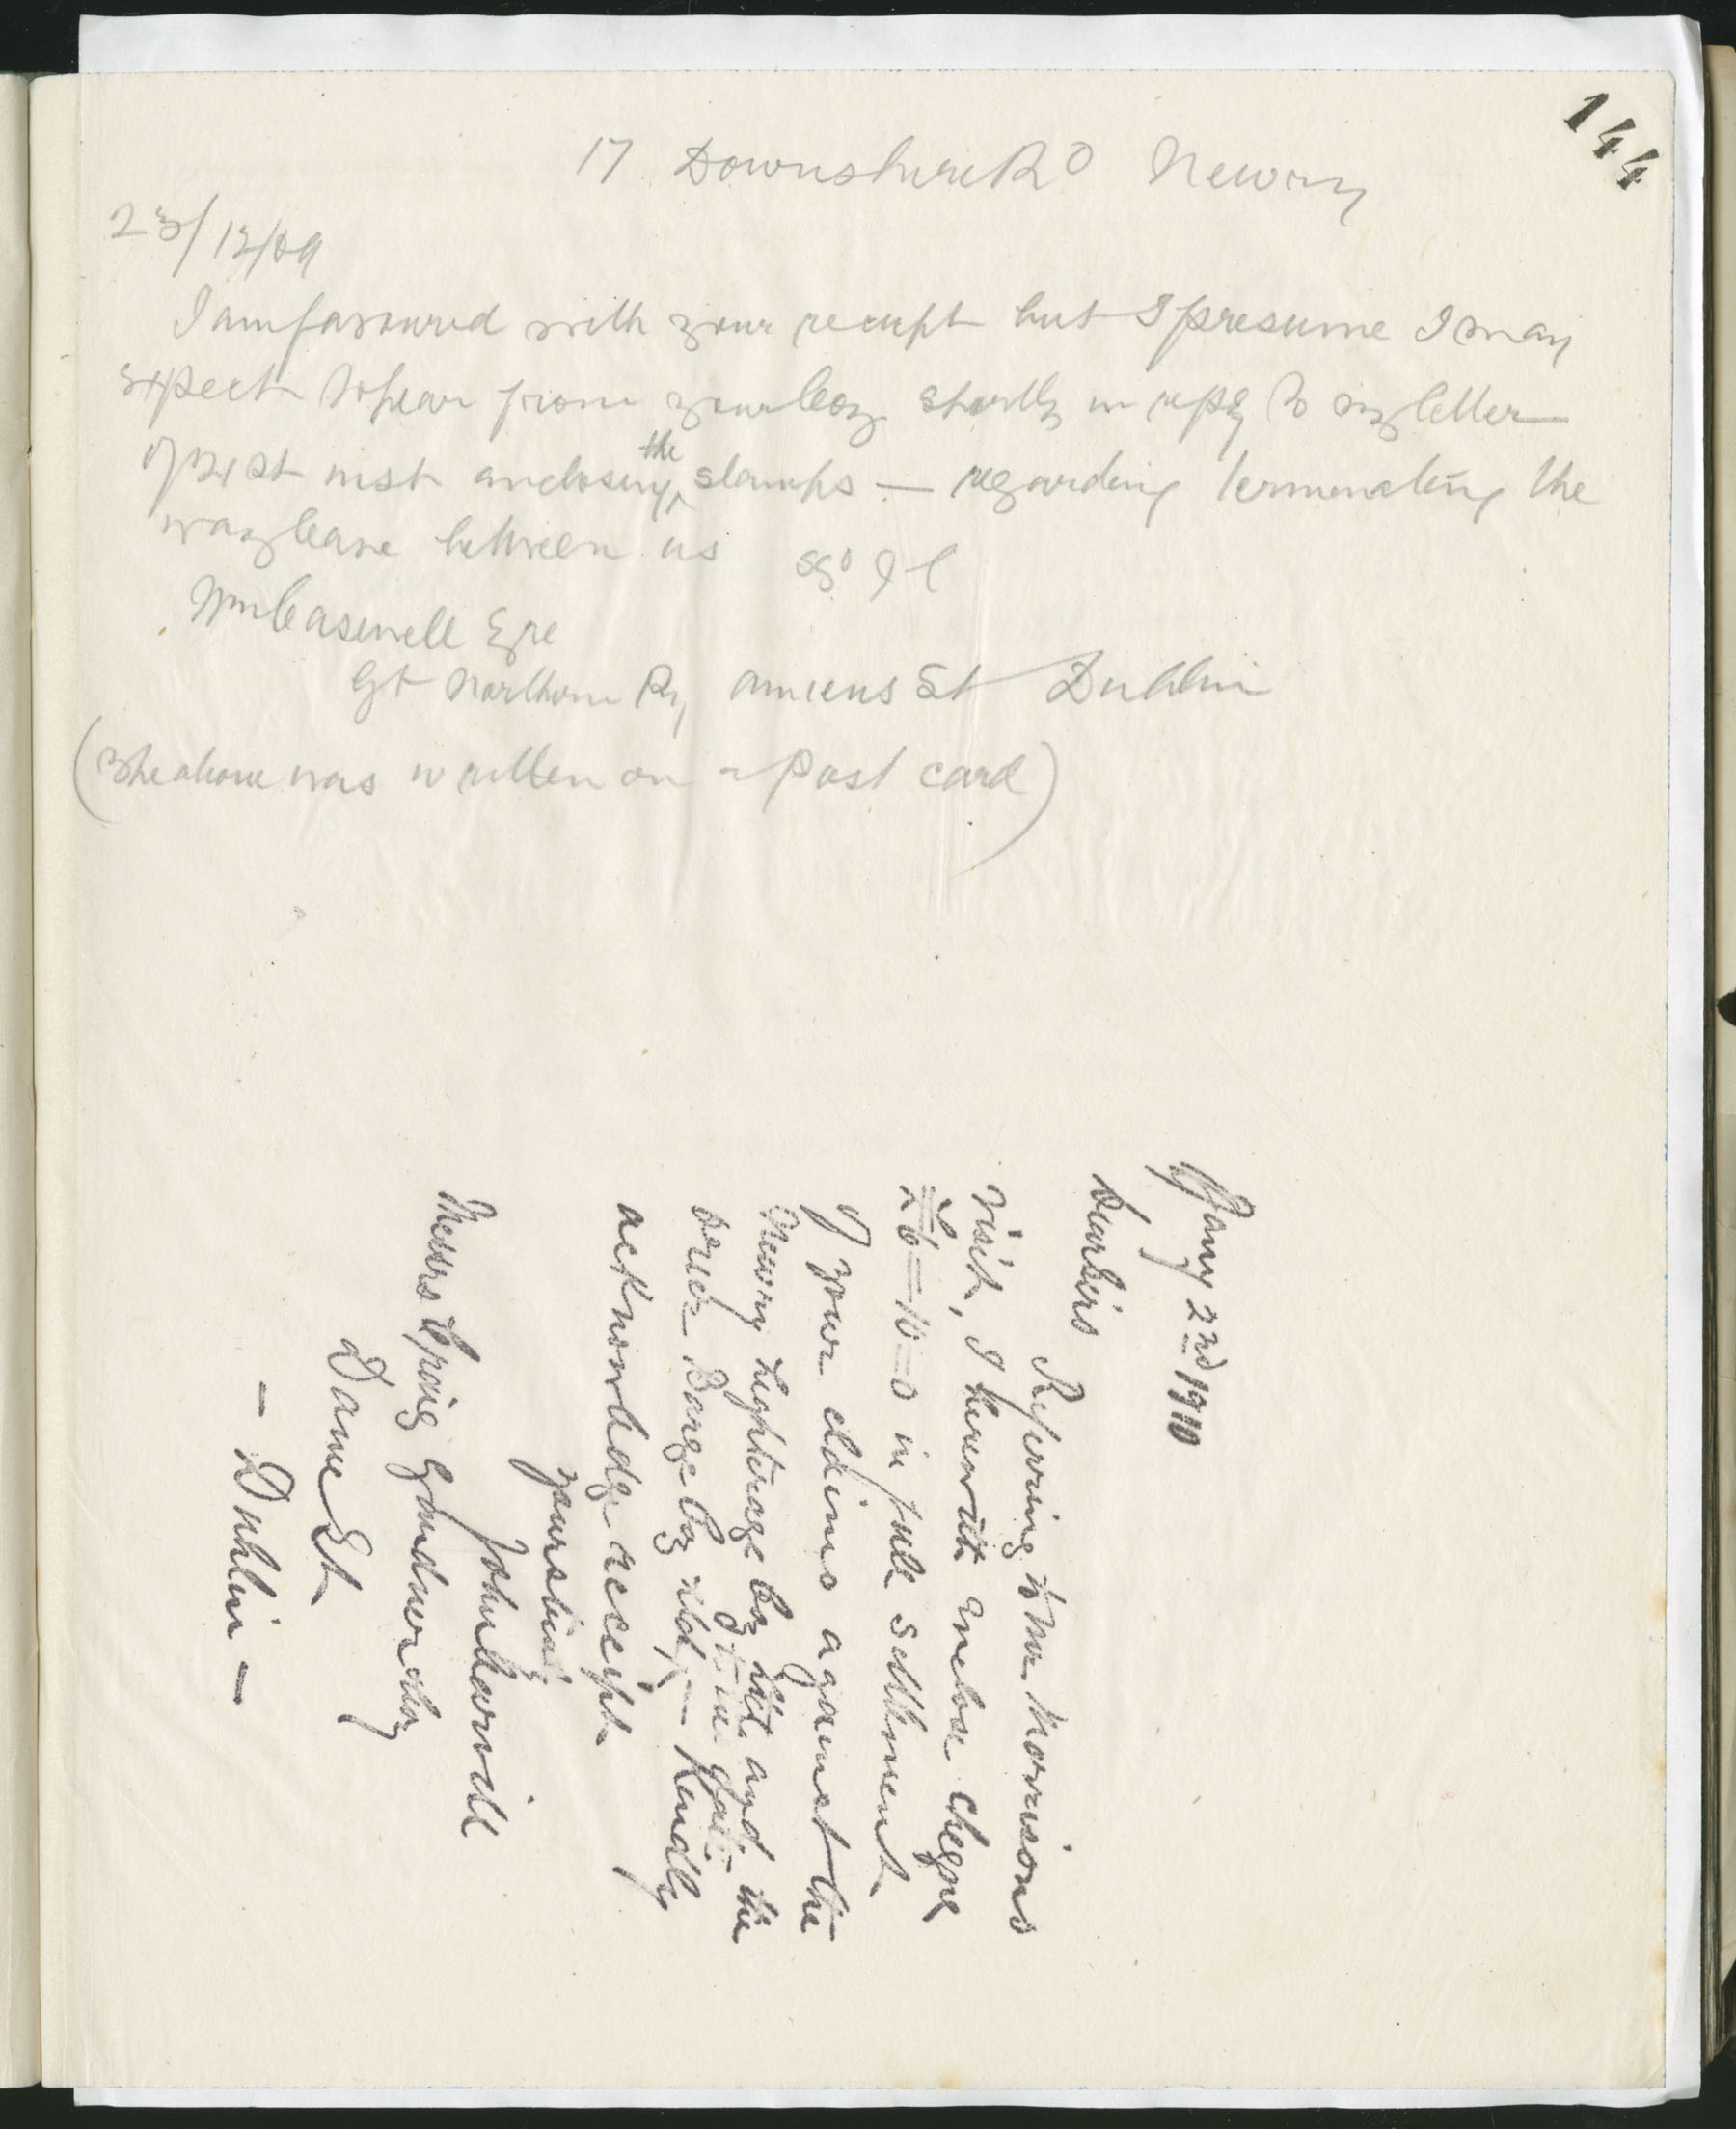 144
17 Downshire Rd Newry
23/12/09
I am favoured with your receipt but I presume I may
expect to hear from your Coy shortly in reply to my letter
of 21st inst enclosing the stamps — regarding terminating the
wayleave between us sgd
Wm Casewell Esqre
Gt Northern Ry Amiens St Dublin
(The above was written on a Post card)
Jany 2nd 1910
Dear Sirs
Referring to Mr Morrisons
visit, I herewith enclose cheque
£6—10—0 in full settlement
of your claims against the
Newry Lighterage Coy Ltd and the
Barge Coy Ltd, — Kindly
acknowledge receipt
yours truly
John
Messrs Craig Gardner & Coy
Dame St
— Dublin —